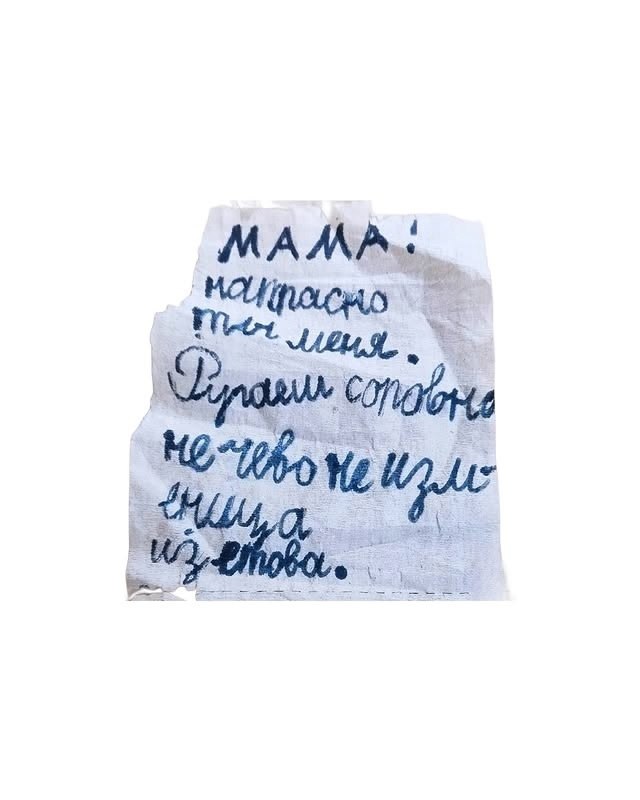 МАМА!
напрасно
ты меня.
Ругаеш соровно
нечево не изм-
еница
из етова.